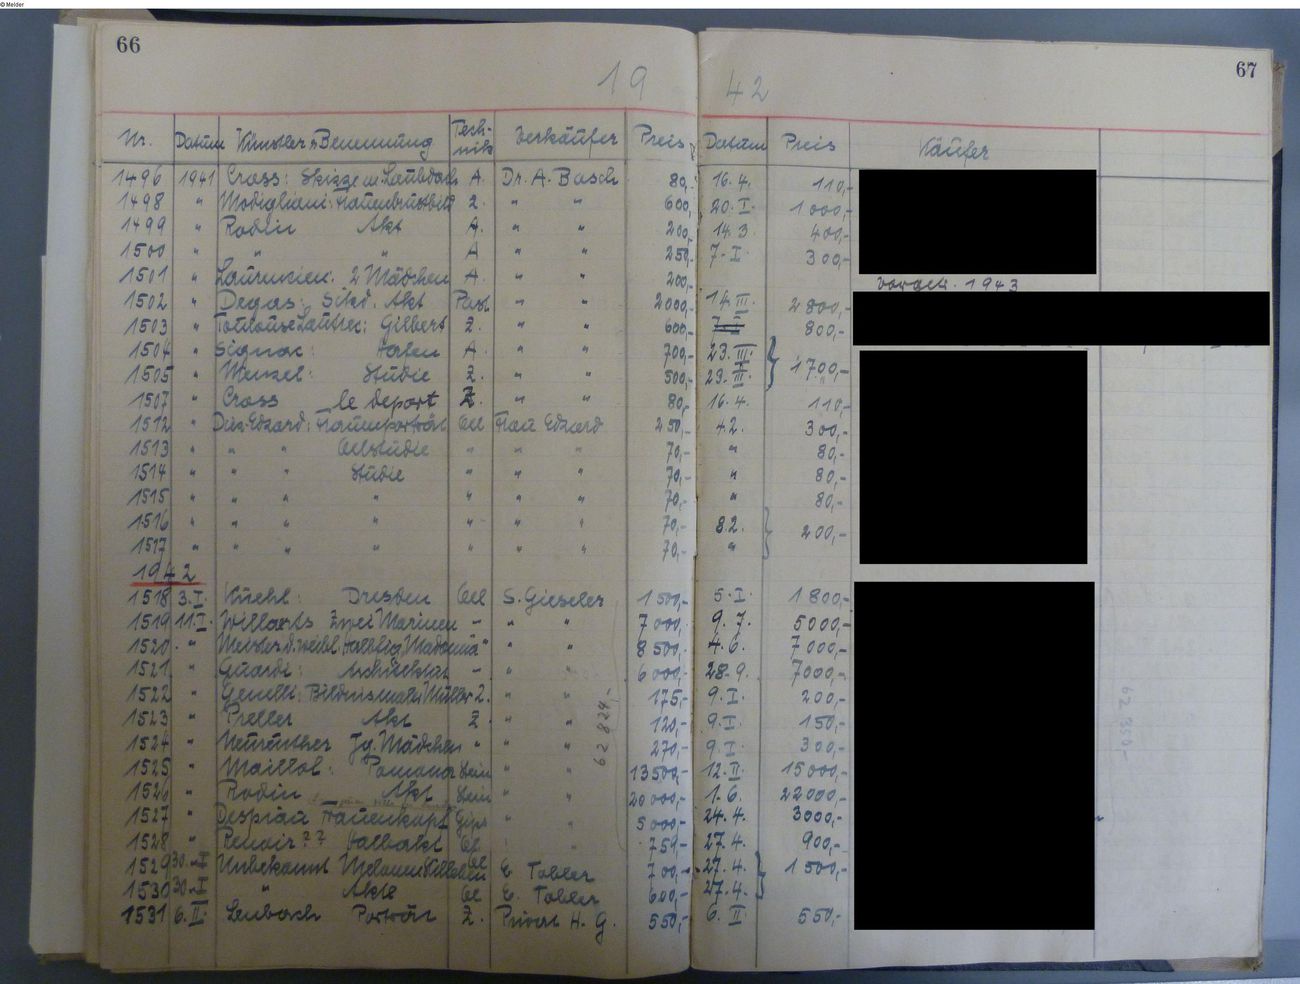 © Melder
66
67
19 42
Nr. Datum Künstler u. Benennung Tech-nik Verkäufer Preis Datum Preis Käufer
1496 1941 Cross: Skizze m. A. Dr. A. Bosch 80,- 16.4. 110,-
1498 " Modigliani: Frauenbrustbild Z. " " 600,- 20.I. 1000,-
1499 " Rodin Akt A. " " 200,- 14.3. 400,-
1500 " " " A " " 250,- 7.I. 300,-
1501 " Laurencien: 2 Mädchen A. " " 200,- 1943
1502 " Degas: Akt Past. " " 2000,- 14.III. 2800,-
1503 " Toulouse Lautrec: Gilbert Z. " " 600,- 800,-
1504 " Signac: Hafen A. " " 700,- 23.III. 1700,-
1505 " Menzel: Studie Z. " " 500,- 23.III.
1507 " Cross le deport Z. " " 80,- 16.4. 110,-
1512 " Dux-Edzard: Frauenporträt Oel Frau Edzard 250,- 4.2. 300,-
1513 " " " Oelstudie " " " 70,- " 80,-
1514 " " " Studie " " " 70,- " 80,-
1515 " " " " " " " 70,- " 80,-
1516 " " " " " " " 70,- 8.2. 200,-
1517 " " " " " " " 70,- "
1942
1518 3.I. Kuehl: Dresden Oel S. Gieseler 1500,- 5.I. 1800,-
1519 11.I. Willaerts Zwei Marinen - " " 7000,- 9.7. 5000,-
1520 " Meister d. weibl. Halbfig. "Madonna" " " 8500,- 4.6. 7000,-
1521 " Guardi: Architektur - " " 6000,- 28.9. 7000,-
1522 " Genelli: Bildnis Müller Z. " " 175,- 9.I. 200,-
1523 " Preller Akt Z. " " 120,- 9.I. 150,-
1524 " Neureuther Jg. Mädchen " " " 270,- 9.I. 300,-
1525 " Maillol: Pomona Stein " " 13500,- 12.II. 15000,-
1526 " Rodin Akt Stein " " 20000,- 1.6. 22000,-
1527 " Despiau Frauenkopf Gips " " 5000,- 24.4. 3000,-
1528 " Renoir?? Halbakt Oel " " 759,- 27.4. 900,-
1529 30.I. Unbekannt Oel E. Tobler 700,- 27.4. 1500,-
1530 30.I. " Akte Oel E. Tobler 600,- 27.4.
1531 6.II. Lenbach Porträt Z. Privat H. G. 550,- 6.II. 550,-
62 824,-
62 350,-